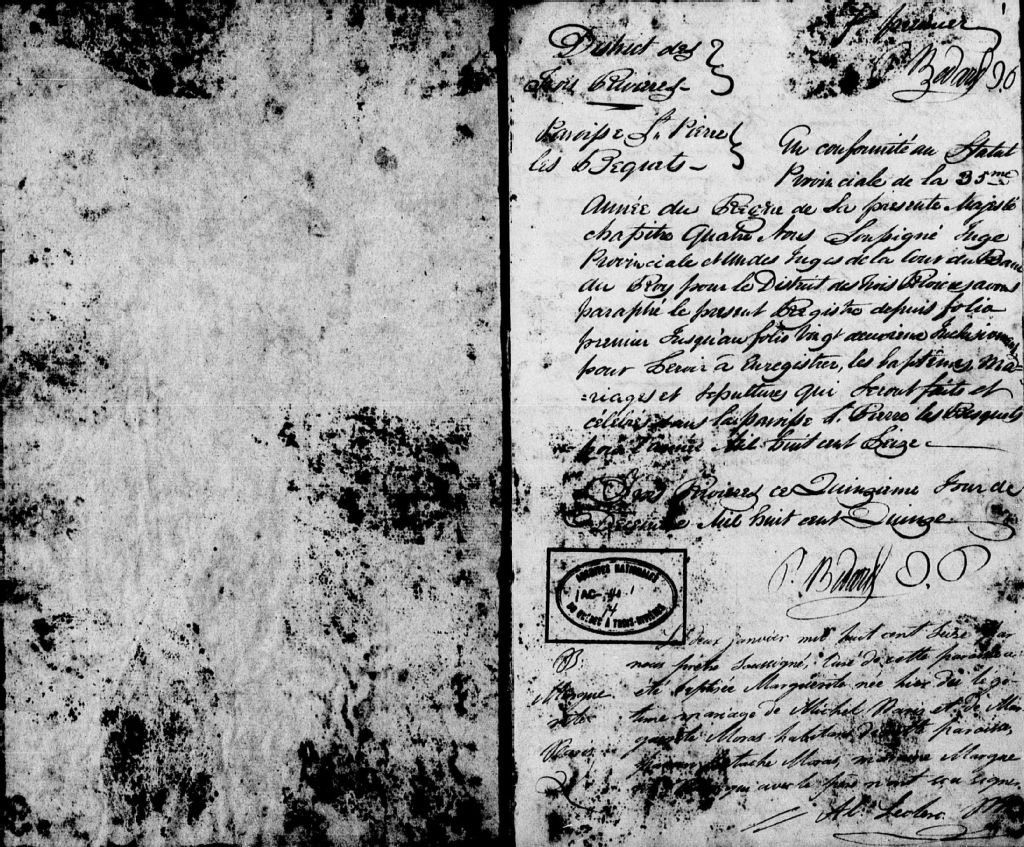 fo. premier
Bedard J. P.
District des
Trois Rivieres
Paroisse St. Pierre
les Bequets
En conformité au Statut
Provinciale de la 35me
Année du Regne de Sa presente Majesté
chapitre Quatre Nous Soussigné Juge
Provinciale et un des Juges de la Cour du Banc
du Roy pour le District des Trois Rivieres avons
paraphé le present Registre depuis folio
premier Jusqu'au folio Vingt Inclusivement
pour Servir à Enregistrer, les baptêmes, Ma-
-riages et Sepultures qui Seront faits et
célébrés dans la paroisse St. Pierre les Bequets
pour l'année Mil huit cent Seize
Trois Rivieres ce Quinzieme Jour de
Decembre Mil huit cent Quinze
P. Bedard J. P.
ARCHIVES NATIONALES
DU QUÉBEC À TROIS-RIVIÈRES
B.
Margue
rite
Le deux janvier mil huit cent Seize par
nous prêtre Soussigné, Curé de cette paroisse a
été baptisée Marguerite née hier du légi-
time mariage de Michel et de Mar
guerite habitans de cette paroisse
Margue
qui avec le père n'ont Signé
Leclerc Ptre